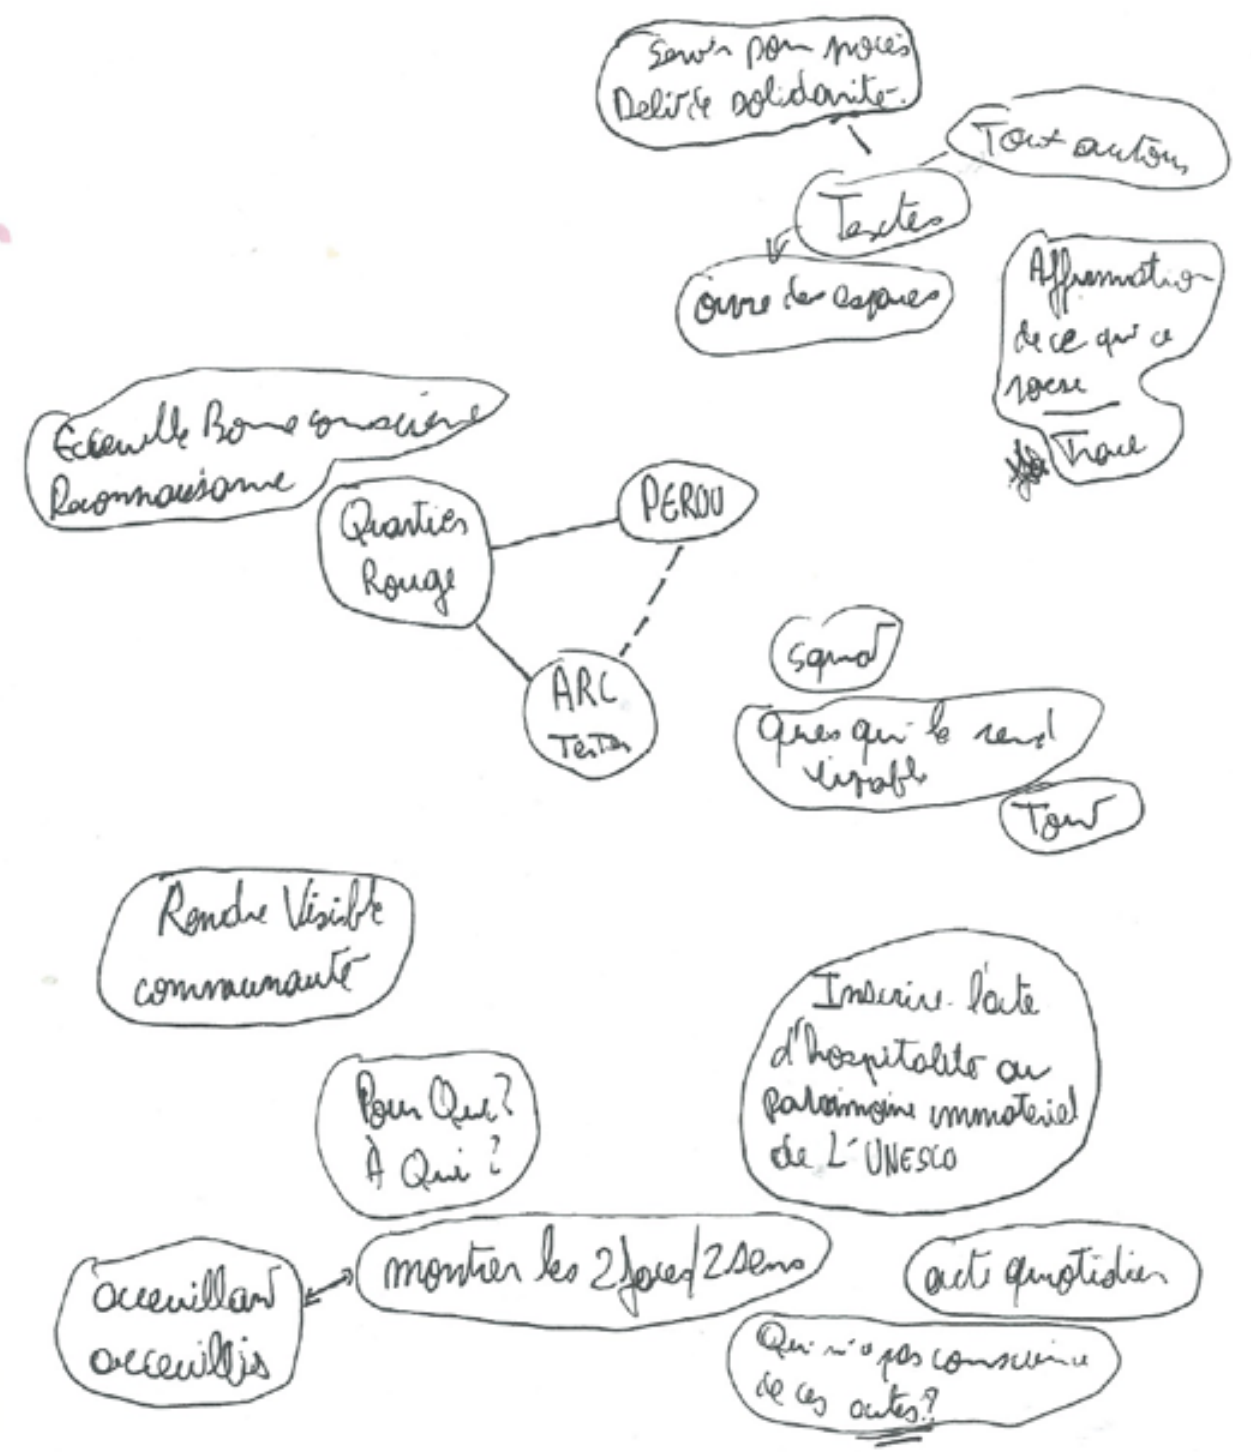 Servir pour procès
Delit de solidarité.
Tout autour
Textes
ouvre des espaces
Affirmation
de ce qui ce
passe
Trace
Bonne conscience
Reconnaissance
Quartier
Rouge
PEROU
ARC
Tester
squat
Ques qui le rend
vivable
Tout
Rendre Visible
communauté
Inscrire l'acte
d'hospitalité au
patrimoine immateriel
de L'UNESCO
Pour Qui?
À Qui?
montrer les 2 faces/2 sens
acte quotidien
acceuillant
acceuillis
Qui n'a pas conscience
de ces actes?